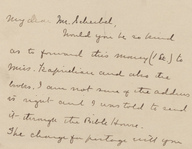 My dear Mr. Scheibel,
Would you be so kind
as to forward this money (1 £) to
Miss. Kapudian and also the
letter. I am not sure of the address
is right and I was told to send
it through the Bible House.
The change for postage will you